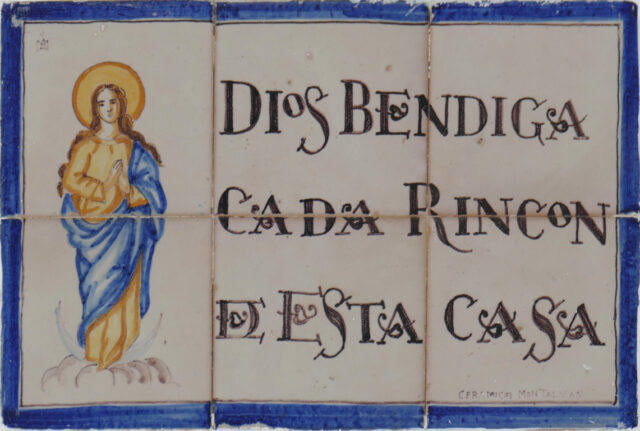 DIOS BENDIGA
CADA RINCON
DE ESTA CASA
CERAMICA MONTALVAN